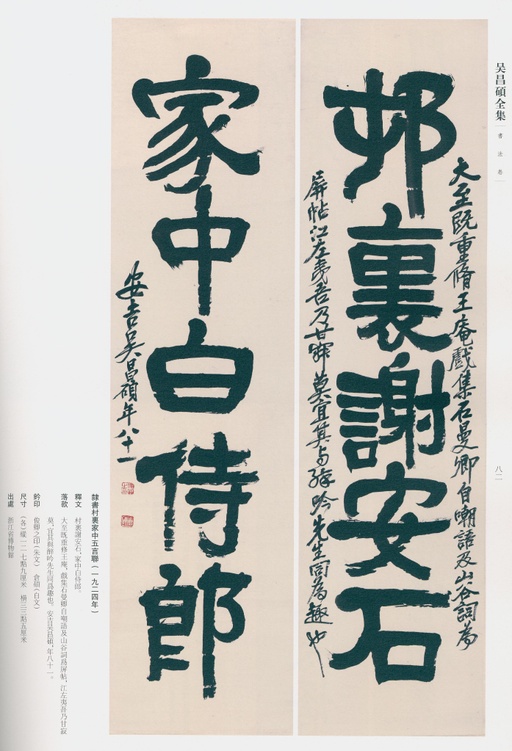 吴昌碩全集
書法卷
八二
邨裏謝安石
大至既重脩王庵戲集石曼卿自嘲語及山谷詞為
屏帖江左夷吾乃甘寂莫宜其与醉吟先生同為趣也
家中白侍郎
安吉吳昌碩年八十一
隸書村裏家中五言聯（一九二四年）
釋文　村裏謝安石，家中白侍郎。
落款　大至既重修王庵，戲集石曼卿自嘲語及山谷詞爲屏帖，江左夷吾乃甘寂
莫，宜其與醉吟先生同爲趣也。安吉吴昌碩，年八十一。
鈐印　俊卿之印（朱文）　倉碩（白文）
尺寸　（各）縱一二七點九厘米　橫三三點五厘米
出處　浙江省博物館